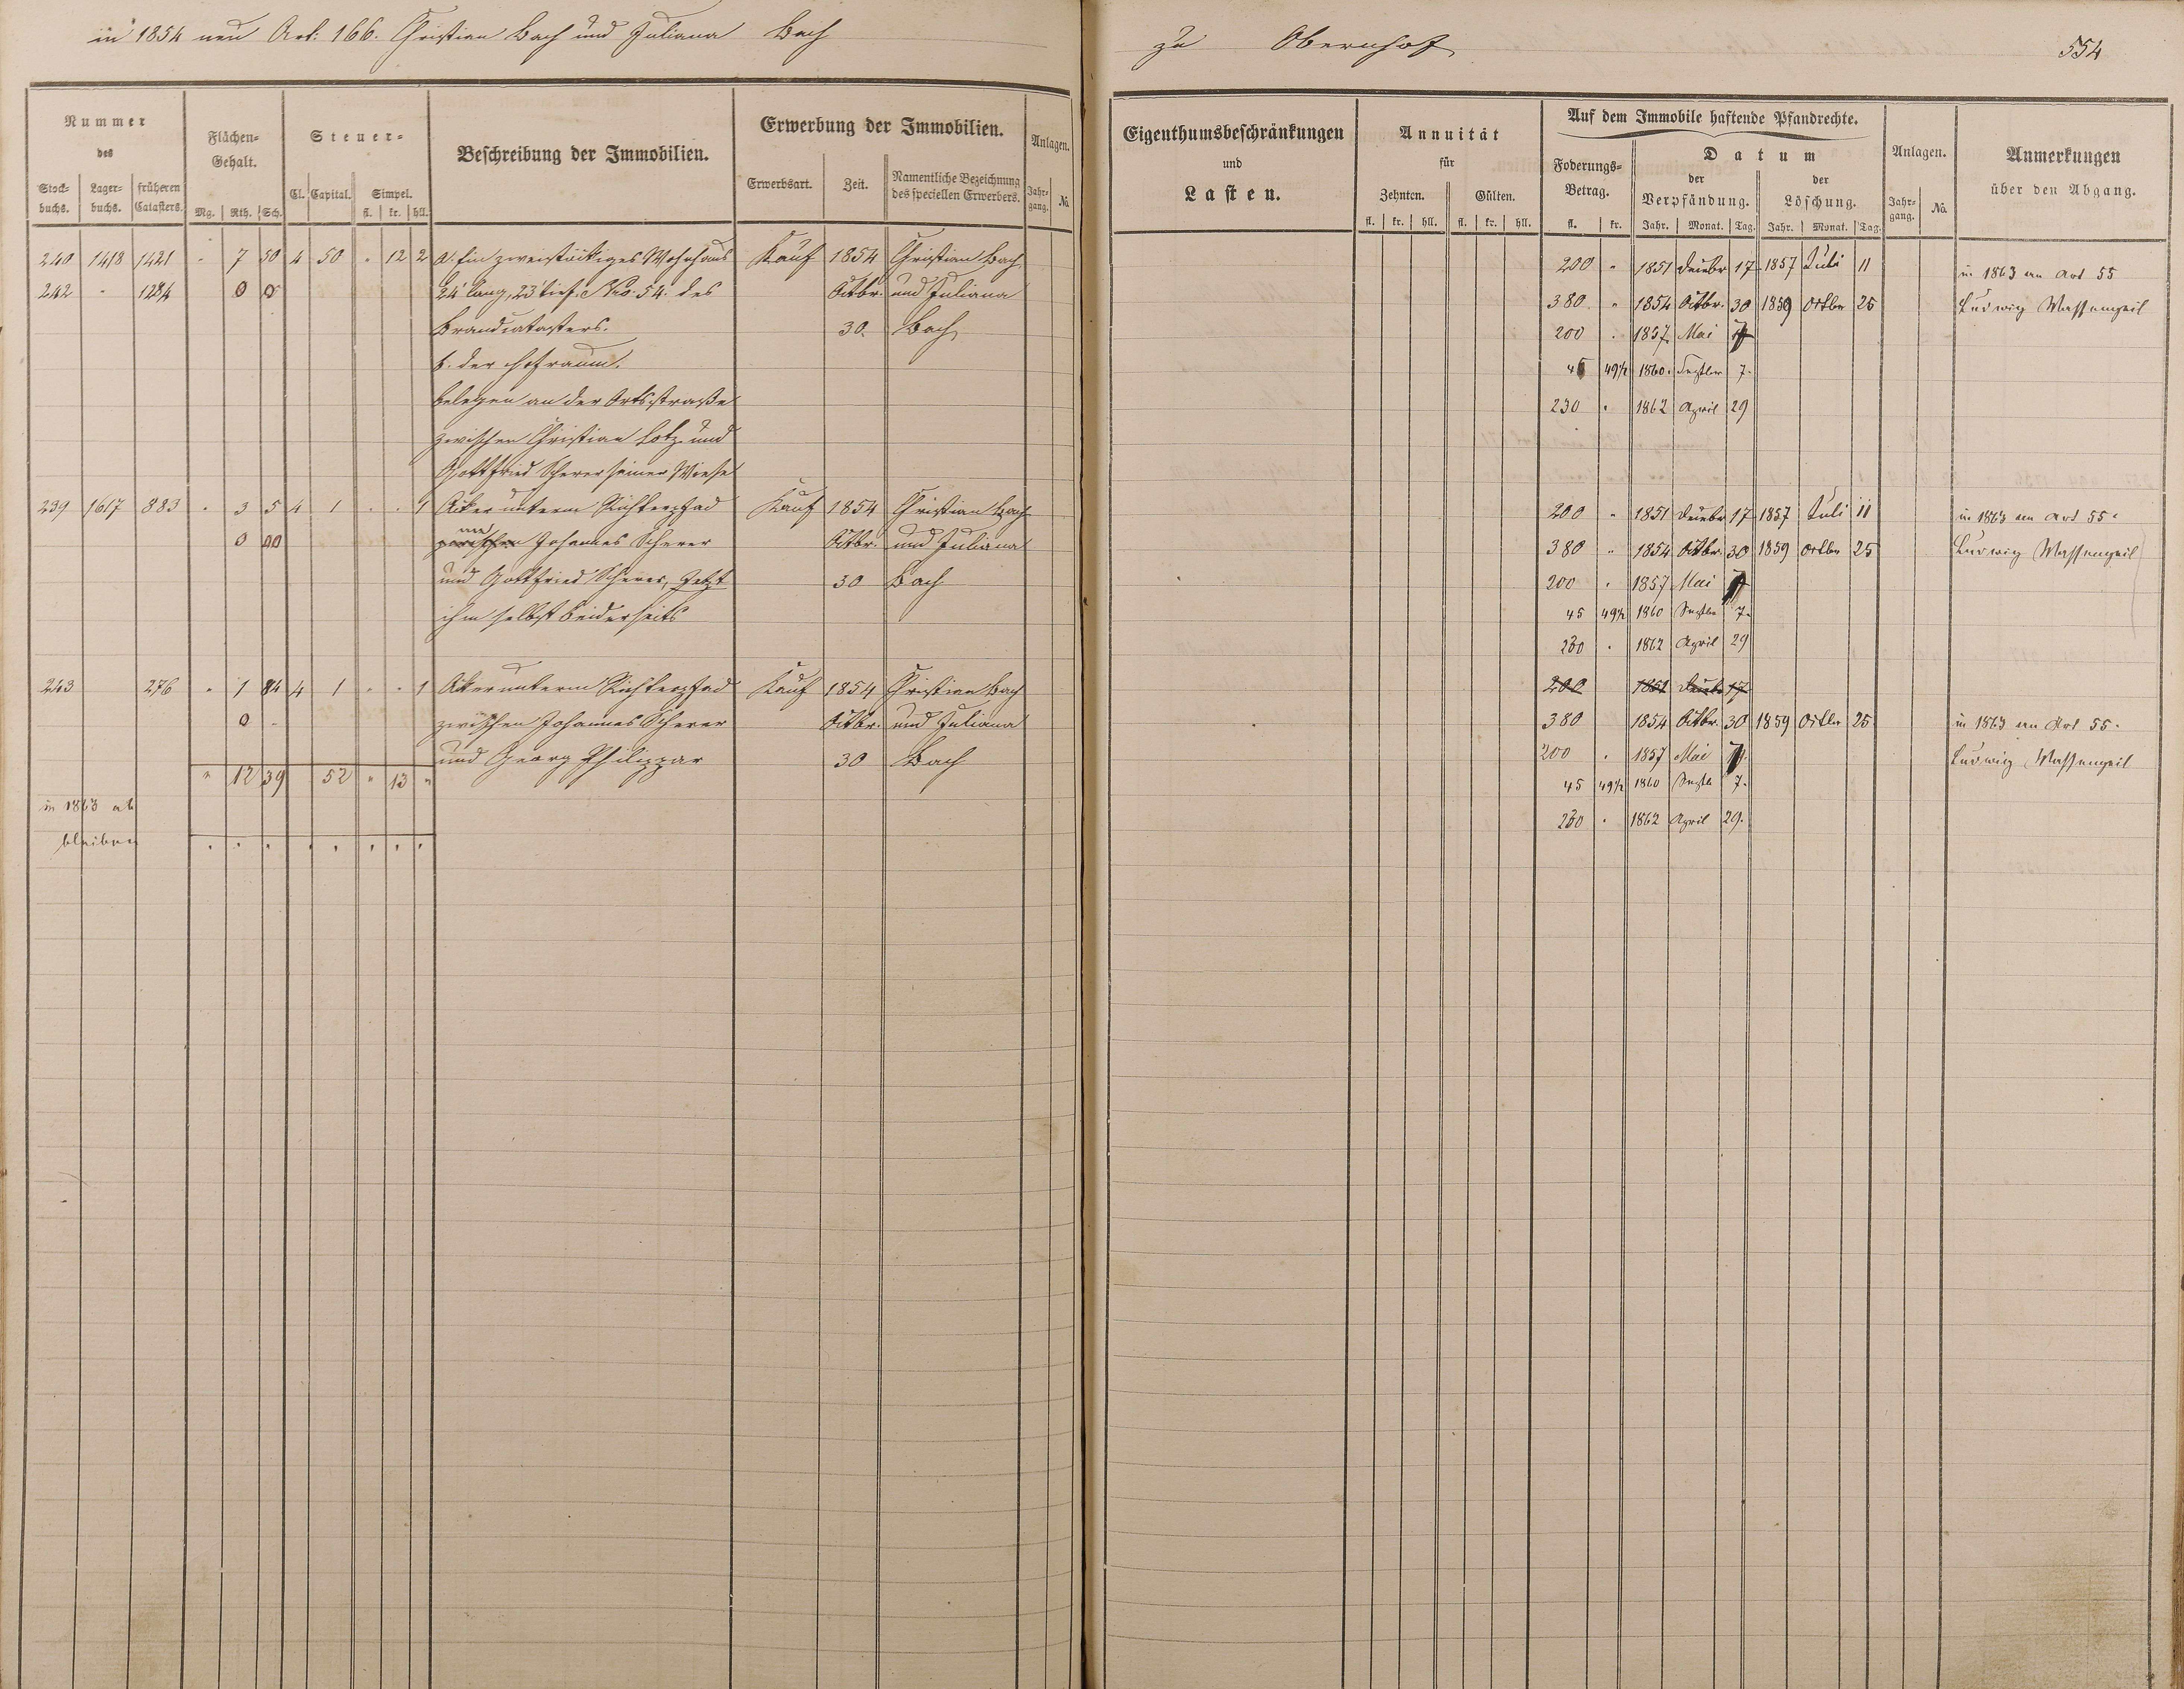 in 1854 neu Art. 166. Christian Bach und Juliana Bach
zu Obernhof
554
Nummer des
Stock-buchs. Lager-buchs. früheren Catasters.
Flächen-Gehalt.
Mg. Rth. Sch.
Steuer-
Cl. Capital. Simpel.
fl. kr. hll.
Beschreibung der Immobilien.
Erwerbung der Immobilien.
Erwerbsart. Zeit. Namentliche Bezeichnung des speciellen Erwerbers.
Anlagen.
Jahr-gang. No.
Eigenthumsbeschränkungen und Lasten.
Annuität für
Zehnten. Gülten.
fl. kr. hll. fl. kr. hll.
Auf dem Immobile haftende Pfandrechte.
Foderungs-Betrag.
fl. kr.
Datum
der Verpfändung. der Löschung.
Jahr. Monat. Tag. Jahr. Monat. Tag.
Anlagen.
Jahr-gang. No.
Anmerkungen über den Abgang.
240 1418 1421 " 7 50 4 50 " 12 2 a. Ein zweistöckiges Wohnhaus Kauf 1854 Christian Bach
242 " 1284 0 0 24' lang, 23' tief. No. 54. des Octbr. und Juliana
Brandcatasters. 30. Bach
b. der Hofraum.
belegen an der Ortsstraße
zwischen Christian Lotz und
Gottfried Scherer seiner Wiese
239 1617 883 " 3 5 4 1 " " 1 Acker unterm Kauf 1854 Christian Bach
0 00 zwischen Johannes Scherer Octbr. und Juliana
und Gottfried Scherer, jetzt 30 Bach
ihm selbst beiderseits
243 276 " 1 84 4 1 " " 1 Acker unterm Kauf 1854 Christian Bach
0 " zwischen Johannes Scherer Octbr. und Juliana
und Georg Philippar 30 Bach
" 12 39 52 " 13 "
in 1863 ab
bleiben " " " " " " " "
200 " 1851 Decbr 17 1857 Juli 11 in 1863 an Art 55
380 " 1854 Octbr. 30 1859 Octbr 25 Ludwig
200 " 1857 Mai
45 49½ 1860 Septbr 7.
230 " 1862 April 29
200 " 1851 Decbr 17 1857 Juli 11 in 1863 an Art 55.
380 " 1854 Octbr. 30 1859 Octbr 25 Ludwig
200 " 1857 Mai
45 49½ 1860 Septbr 7.
230 " 1862 April 29
200 1851 Decbr 17
380 1854 Octbr. 30 1859 Octbr 25 in 1863 an Art 55.
200 " 1857 Mai Ludwig
45 49½ 1860 Septbr 7.
230 " 1862 April 29.